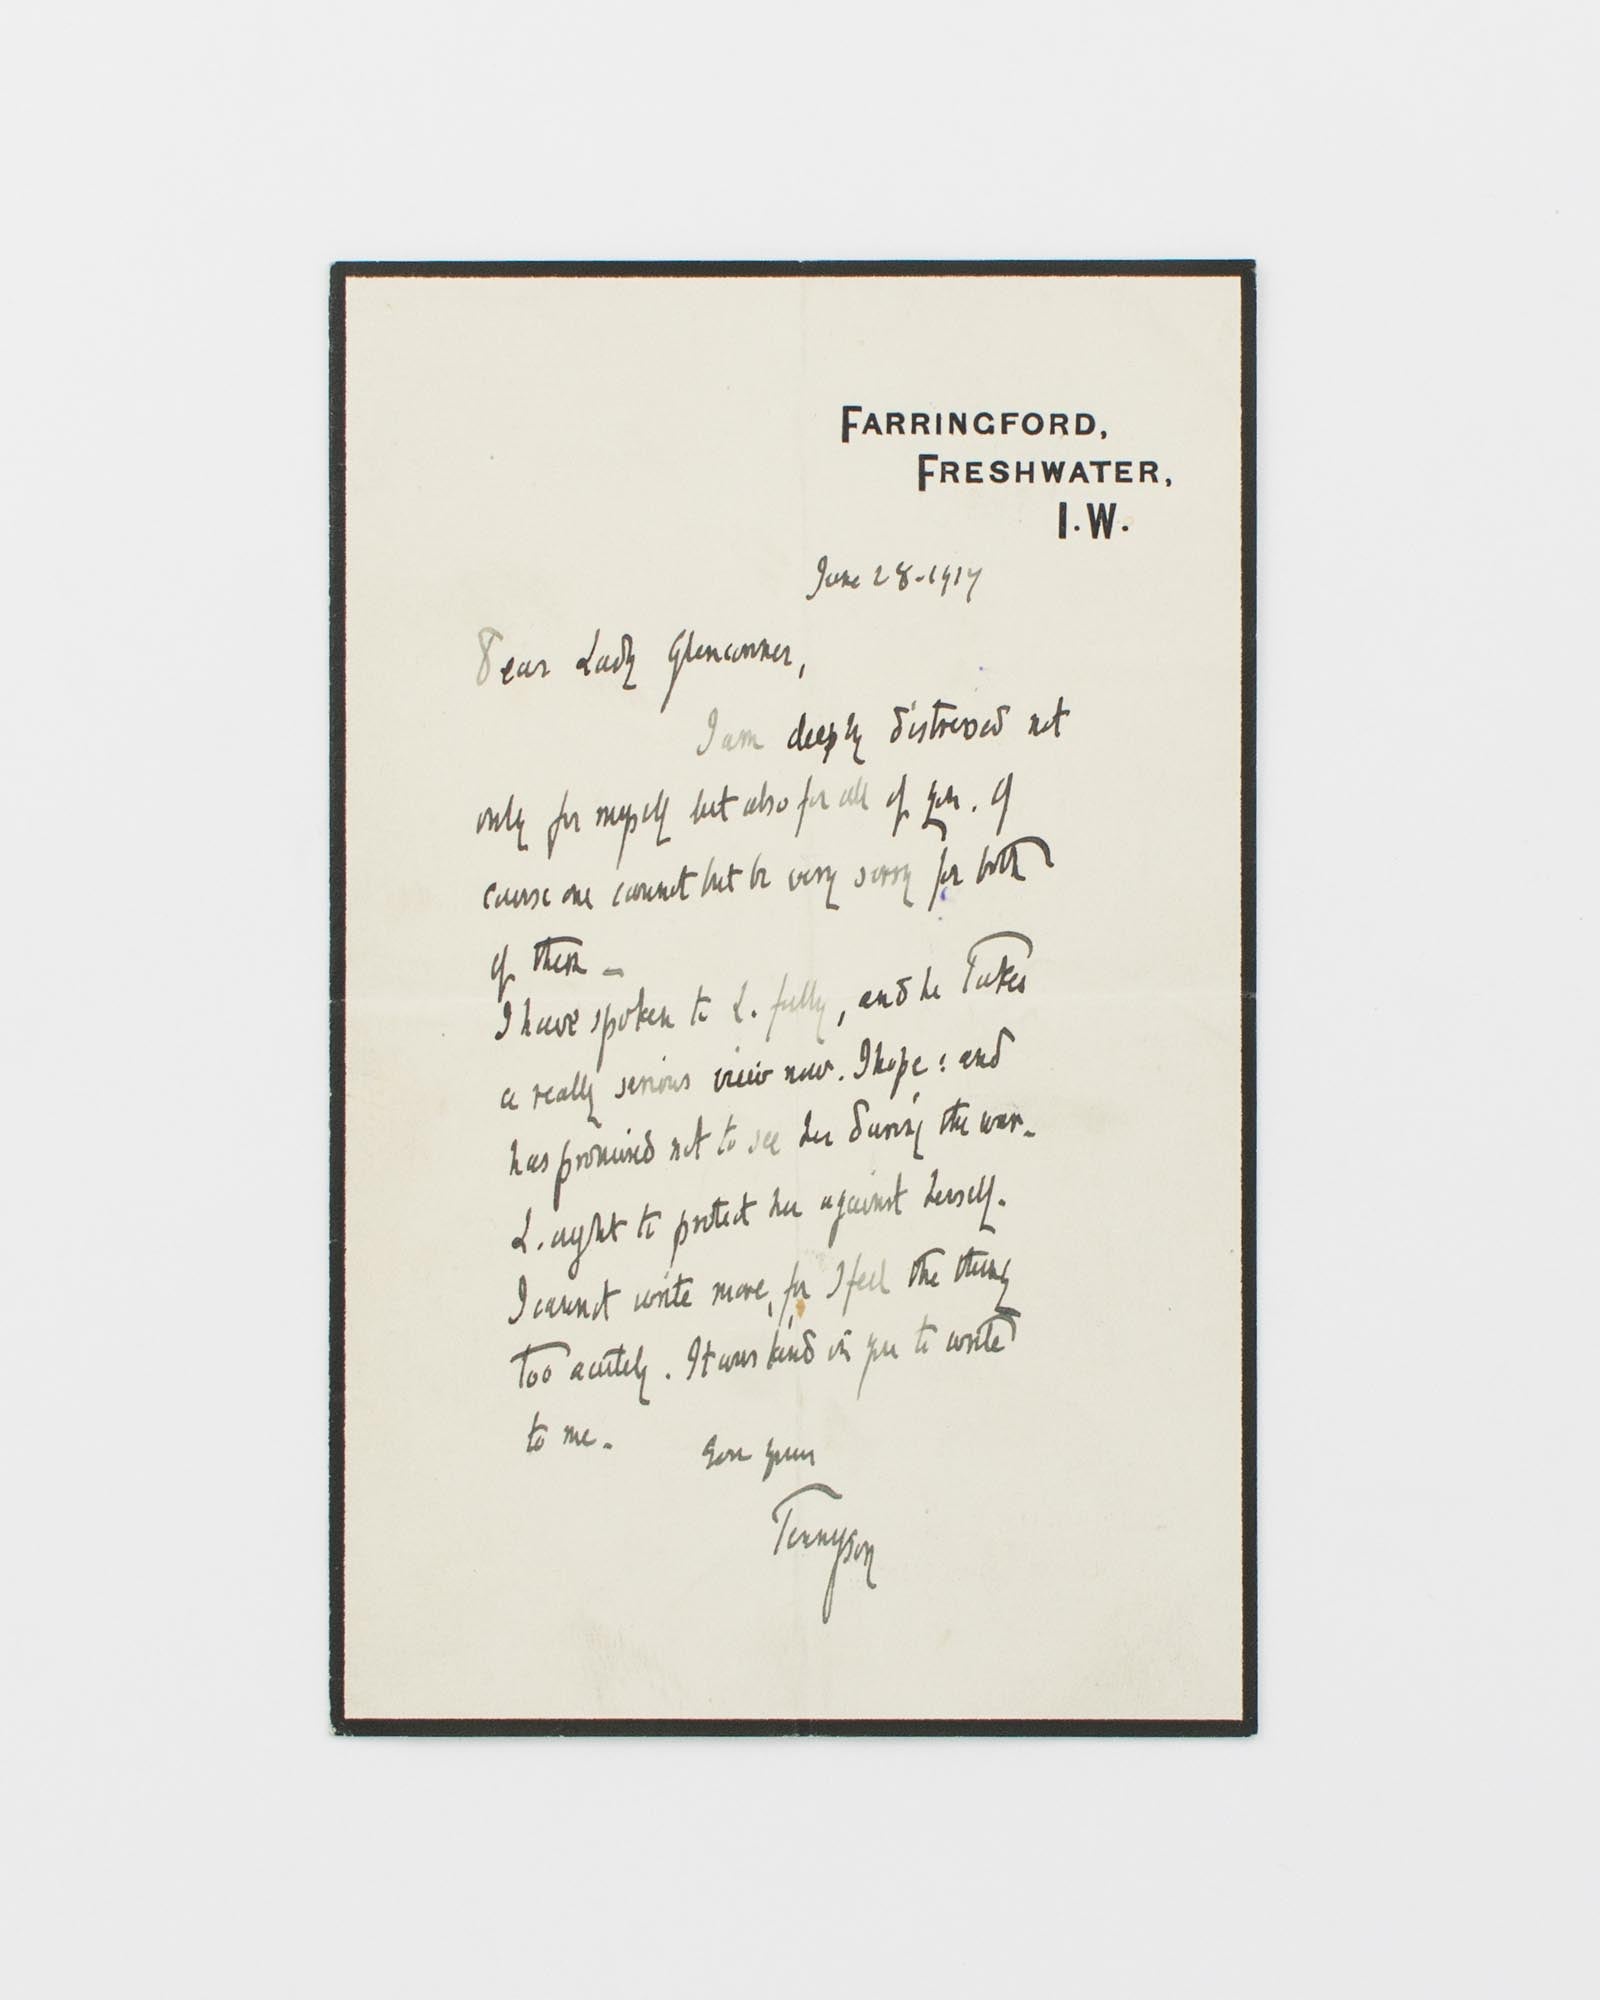 FARRINGFORD,
FRESHWATER,
I.W.
June 28-1917
Dear Lady Glenconner,
I am deeply distressed not
only for myself but also for all of you. Of
course one cannot but be very sorry for both
of them –
I have spoken to L. fully, and he Takes
a really serious view now. I hope: and
has promised not to see her during the war.
L. ought to protect her against herself.
I cannot write more, for I feel the thing
Too acutely. It was kind in you to write
to me.
Tennyson